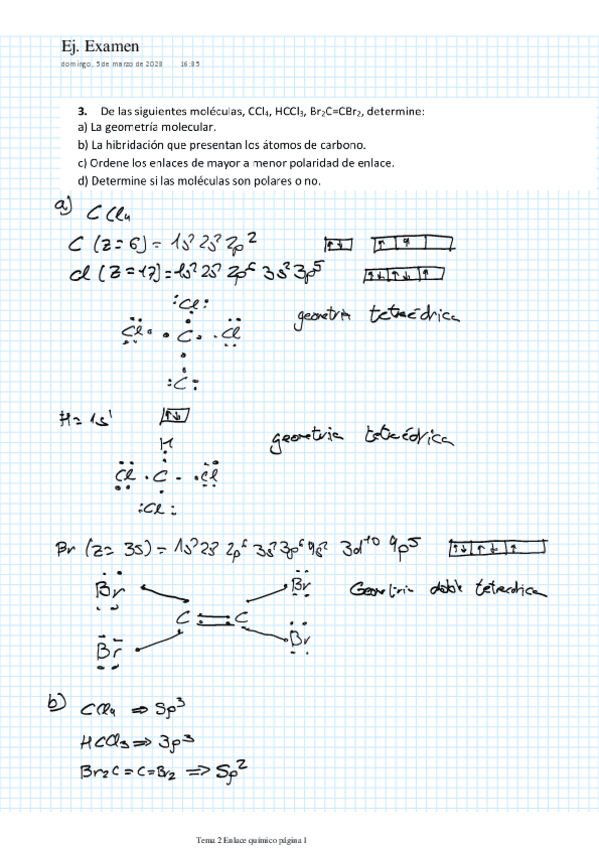 Ej. Examen
domingo, 5 de marzo de 2023 16:35
3. De las siguientes moléculas, CCl₄, HCCl₃, Br₂C=CBr₂, determine:
a) La geometría molecular.
b) La hibridación que presentan los átomos de carbono.
c) Ordene los enlaces de mayor a menor polaridad de enlace.
d) Determine si las moléculas son polares o no.
a) CCl₄
C (Z=6) = 1s² 2s² 2p²
Cl (Z=17) = 1s² 2s² 2p⁶ 3s² 3p⁵
Cl
geometria tetraédrica
Cl C Cl
C
H = 1s¹
H
geometria tetraédrica
Cl C Cl
Cl
Br (Z=35) = 1s² 2s² 2p⁶ 3s² 3p⁶ 4s² 3d¹⁰ 4p⁵
Br Br
doble tetraedrica
C = C
Br Br
b) CCl₄ ⇒ Sp³
HCCl₃ ⇒ 3p³
Br₂C = C = Br₂ ⇒ Sp²
Tema 2 Enlace químico página 1